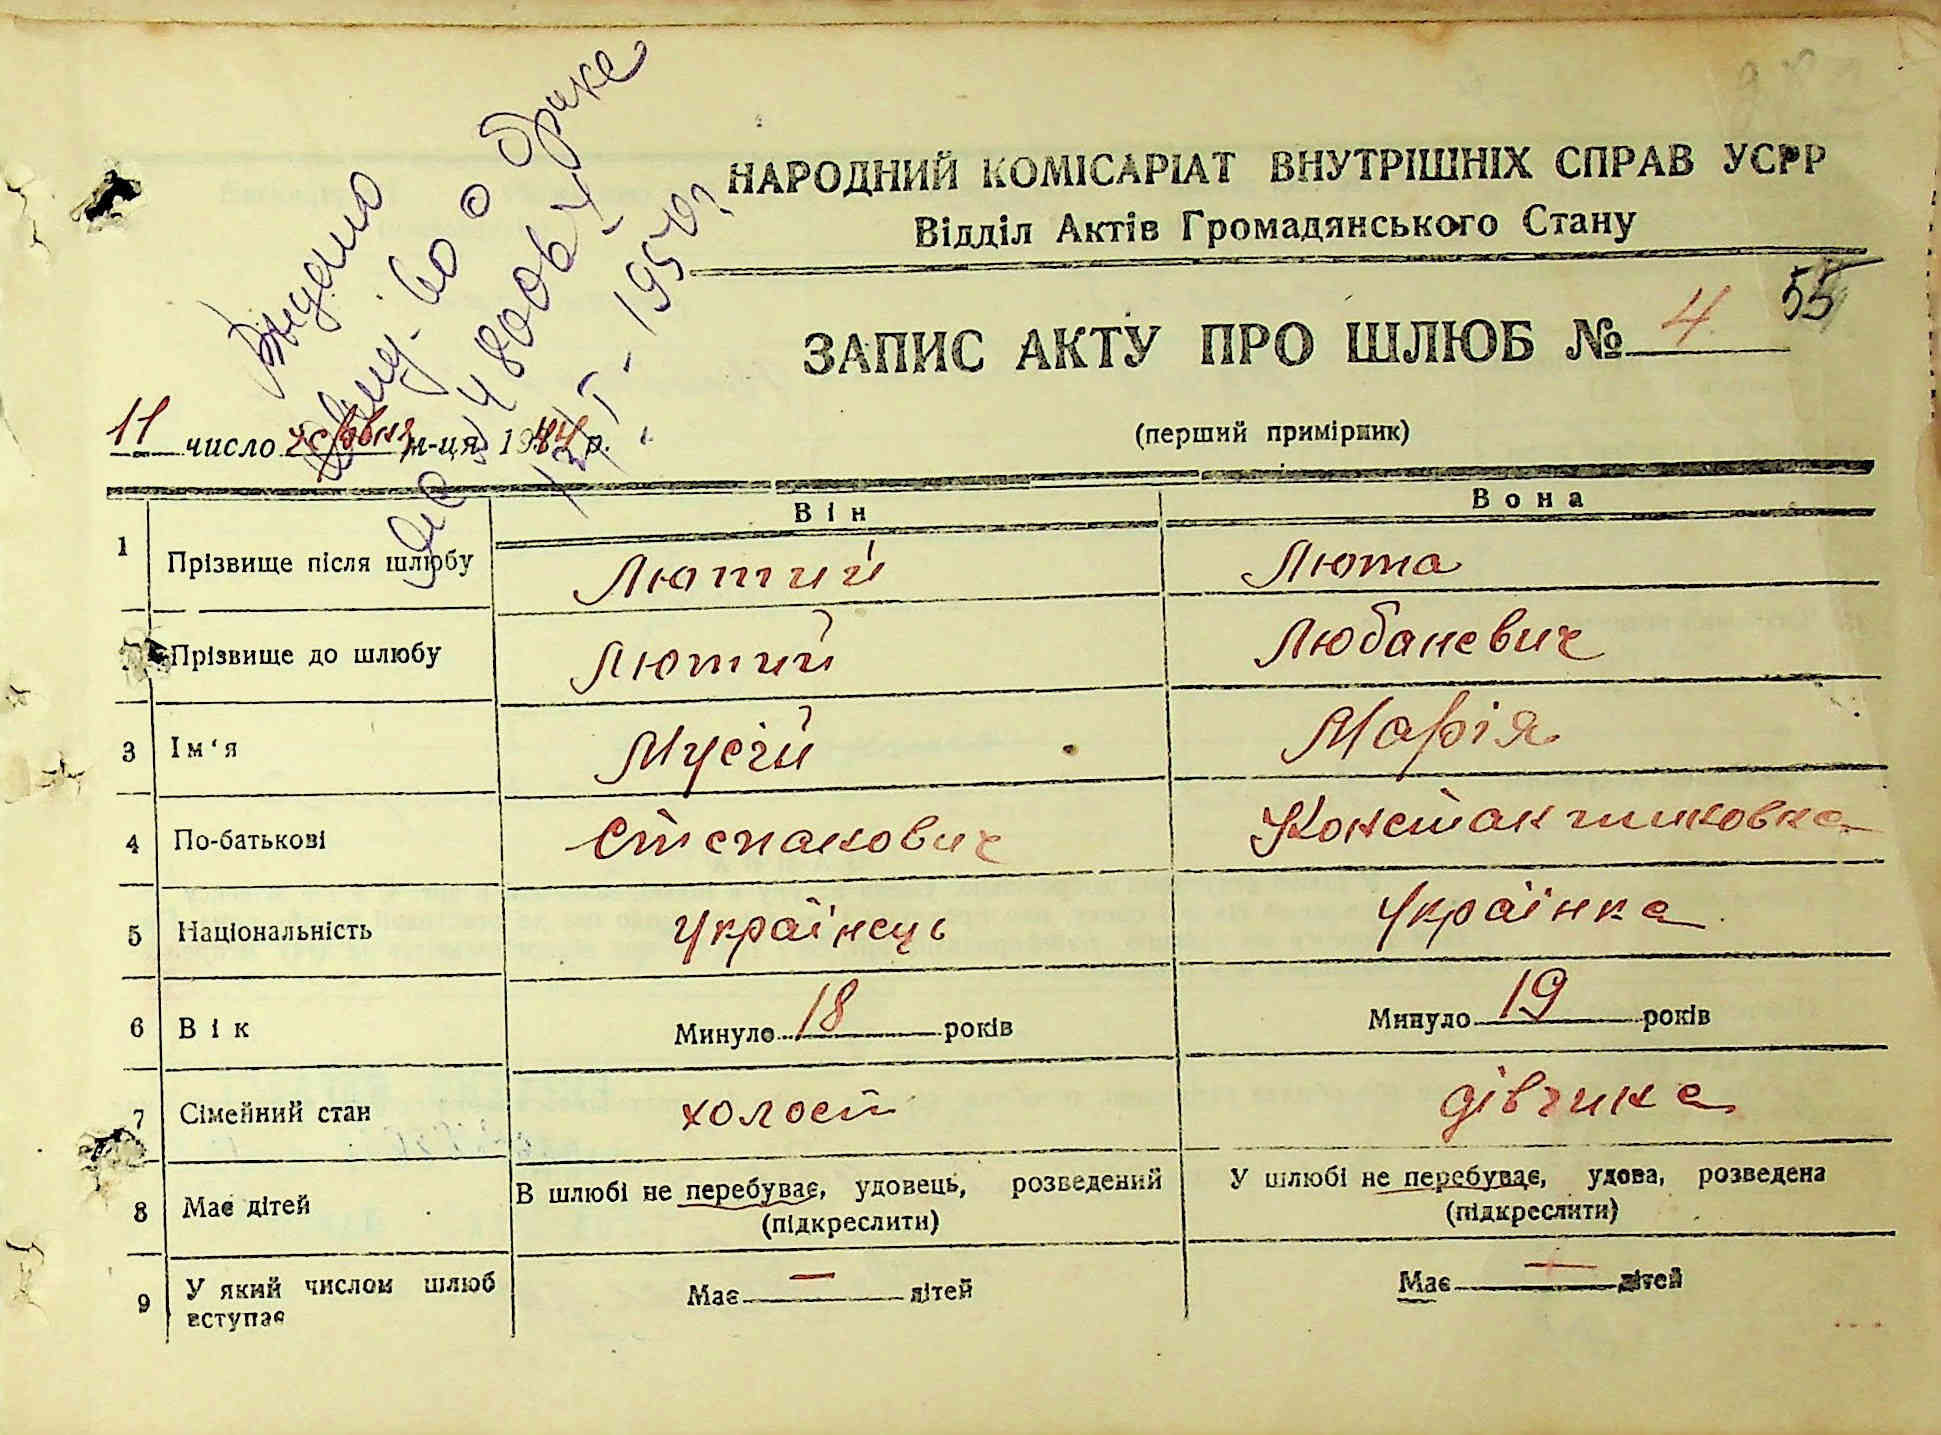 НАРОДНИЙ КОМІСАРІАТ ВНУТРІШНІХ СПРАВ УСРР
Відділ Актів Громадянського Стану
ЗАПИС АКТУ ПРО ШЛЮБ № 4
55
(перший примірник)
Видано
о браке
1950г
11 число червня м-ця 1944 р.
Він Вона
1 Прізвище після шлюбу Лютий Люта
Прізвище до шлюбу Лютий Любаневич
3 Ім'я Мусій Марія
4 По-батькові Степанович Константиновна
5 Національність Українець Українка
6 Вік Минуло 18 років Минуло 19 років
7 Сімейний стан холост дівчина
8 Має дітей В шлюбі не перебуває, удовець, розведений У шлюбі не перебуває, удова, розведена
(підкреслити) (підкреслити)
9 У який числом шлюб Має — дітей Має — дітей
вступає